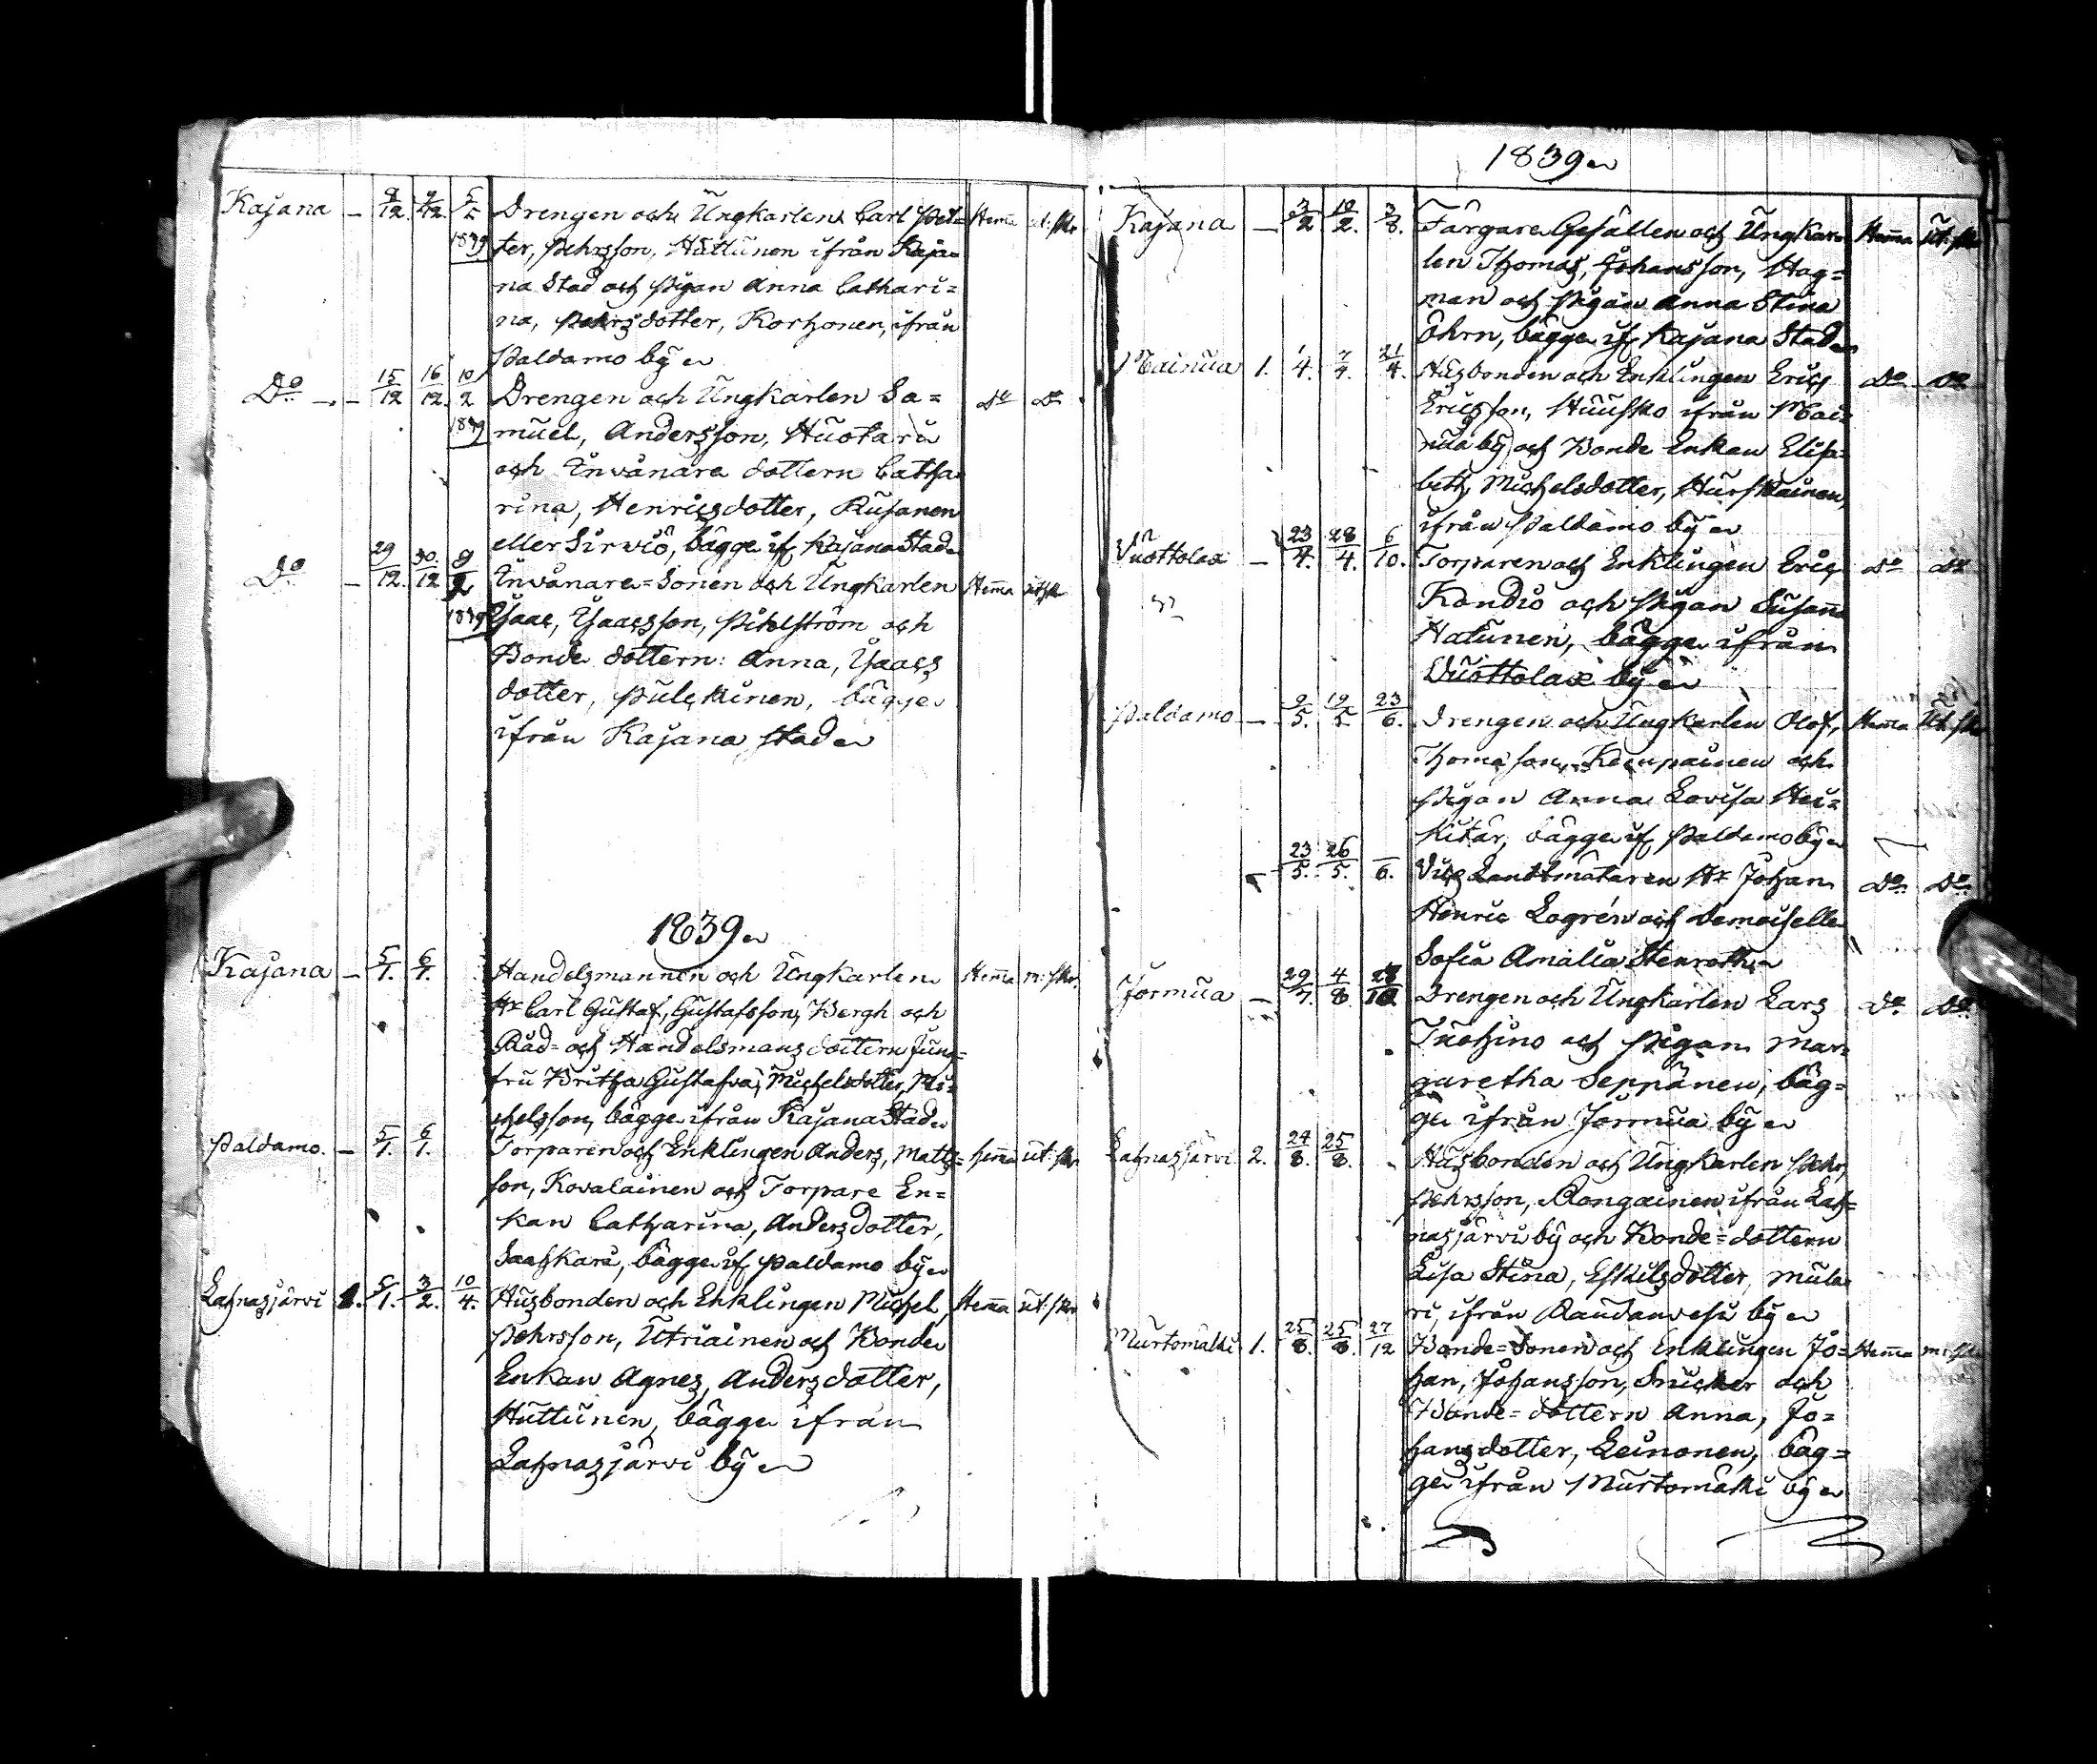 Kajana — 9/12. 9/12. 5/5 1839 Drengen och Ungkarlen Carl Pet= Hema ut: skr
ter, Pehrsson, Huttunen ifrån Kaja=
na Stad och Pigan Anna Cathari=
na, Pehrsdotter, Korhonen, ifrån
Paldamo by
Do — 15/12 16/12. 10/2 1839 Drengen och Ungkarlen Sa= do do
muel, Andersson, Huotari
och Invånare dottern Catha
rina, Henricsdotter, Rusanen
eller Sirviö, bägge if Kajana Stad
Do — 29/12. 30/12 9/2 1839 Invånare=Sonen och Ungkarlen Hema ut skr
Isaac, Isaacsson, Pihlström och
Bonde dottern: Anna, Isaacs
dotter, Pulckinen, bägge
ifrån Kajana stad
1839
Kajana — 5/1. 6/1. Handelsmannen och Ungkarlen Hema m: skr.
Hr Carl Gustaf, Gustafsson, Bergh och
Råd= och Handelsmans dottern Jung=
fru Britha Gustafva, Michelsdotter, Mi=
chelsson, bägge ifrån Kajana Stad
Paldamo. — 5/1. 6/1. Torparen och Enklingen Anders, Matts= hema ut: skr
son, Kovalainen och Torpare En=
kan Catharina, Andersdotter,
Saaskari, bägge if Paldamo by
Lahnasjärvi 1. 6/1. 3/2. 10/4. Husbonden och Enklingen Michel, Hema ut: skr
Pehrsson, Utriainen och Bonde
Enkan Agnes, Andersdotter,
Huttunen, bägge ifrån
Lahnasjärvi by
1839
Kajana — 3/2 10/2. 3/8. Färgare Gesällen och Ungkar= Hema ut: skr
len Thomas, Johansson, Hag=
man och Pigan Anna Stina
Öhrn, bägge if Kajana Stad
Mainua 1. 1/4. 7/4. 21/4. Husbonden och Enklingen Eric, Do Do
Ericsson, Huusko ifrån Mai=
nua by och Bonde Enkan Elisa=
beth, Michelsdotter, Hurskainen,
ifrån Paldamo by
Vuottolax — 23/4. 28/4. 6/10. Torparen och Enklingen Eric, do do
Kandio och Pigan Susana
Hatunen, bägge ifrån
Vuottolax by
Paldamo — 9/5. 19/5. 23/6. Drengen och Ungkarlen Olof, Hema Ut: skr
Thomasson, Kemppainen och
Pigan Anna Lovisa Hei=
kitär, bägge if Paldamo by
— 23/5. 26/5. —/6. Vice Landtmätaren Hr Johan Do Do
Henric Logrén och Demoiselle
Sofia Amalia Stenroth
Jormua — 29/7. 4/8. Drengen och Ungkarlen Lars Do Do
Tuohino och Pigan Mar=
garetha Seppänen, bäg=
ge ifrån Jormua by
Lahnasjärvi 2. 24/8. 25/8. Husbonden och Ungkarlen Pehr,
Pehrsson, Rongainen ifrån Lah=
nasjärvi by och Bonde=dottern
Lisa Stina, Eskilsdotter, Mula=
ri, ifrån Raudanvesi by
Murtomäki 1. 25/8. 25/8. 27/12 Bonde=Sonen och Enklingen Jo= Hema m: skr
han, Johansson, Snicker och
Bonde=dottern Anna, Jo=
hansdotter, Leinonen, bäg=
ge ifrån Murtomäki by